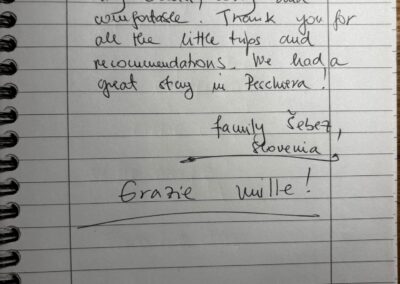 comfortable. Thank you for
all the little tips and
recommendations. We had a
great stay in Peschiera!
family Šebez,
Slovenia
Grazie mille!